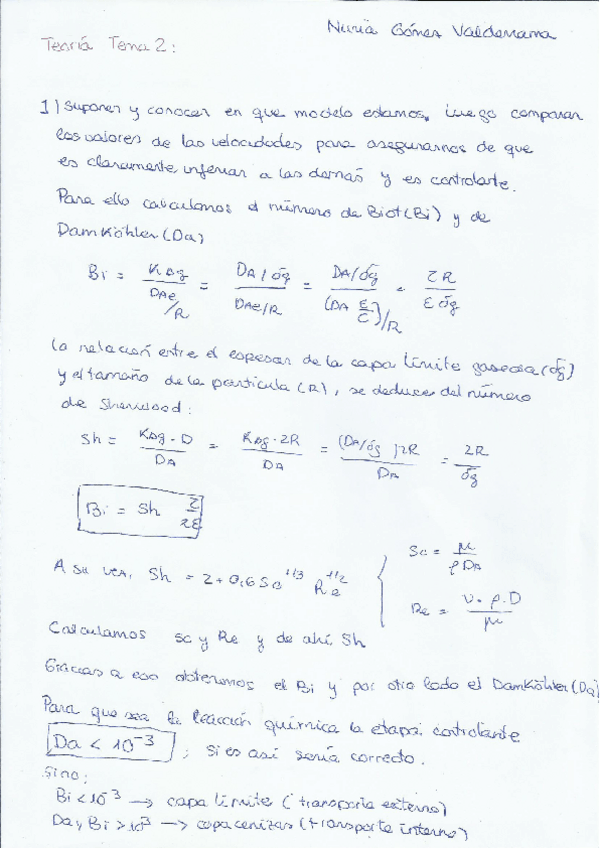 Nuria Gómez Valderrama
Teoría Tema 2:
1) Suponer y conocer en que modelo estamos. Luego comparar
los valores de las velocidades para asegurarnos de que
es claramente inferior a las demás y es controlante.
Para ello calculamos el número de Biot (Bi) y de
DamKöhler (Da)
Bi = KAg / (DAe/R) = (DA/δg) / (DAe/R) = (DA/δg) / ((DA ε/τ)/R) = τR / εδg
La relación entre el espesor de la capa límite gaseosa (δg)
y el tamaño de la partícula (R), se deduce del número
de Sherwood:
Sh = KAg · D / DA = KAg · 2R / DA = (DA/δg)2R / DA = 2R / δg
Bi = Sh τ/2ε
A su vez, Sh = 2 + 0,6 Sc^1/3 Re^1/2
Sc = μ / ρDA
Re = v · ρ · D / μ
Calculamos Sc y Re y de ahí Sh
Gracias a eso obtenemos el Bi y por otro lado el DamKöhler (Da)
Para que sea la reacción química la etapa controlante
Da < 10^-3 ; si es así sería correcto.
Sino:
Bi < 10^-3 → capa límite (transporte externo)
Da y Bi > 10^3 → capa cenizas (transporte interno)